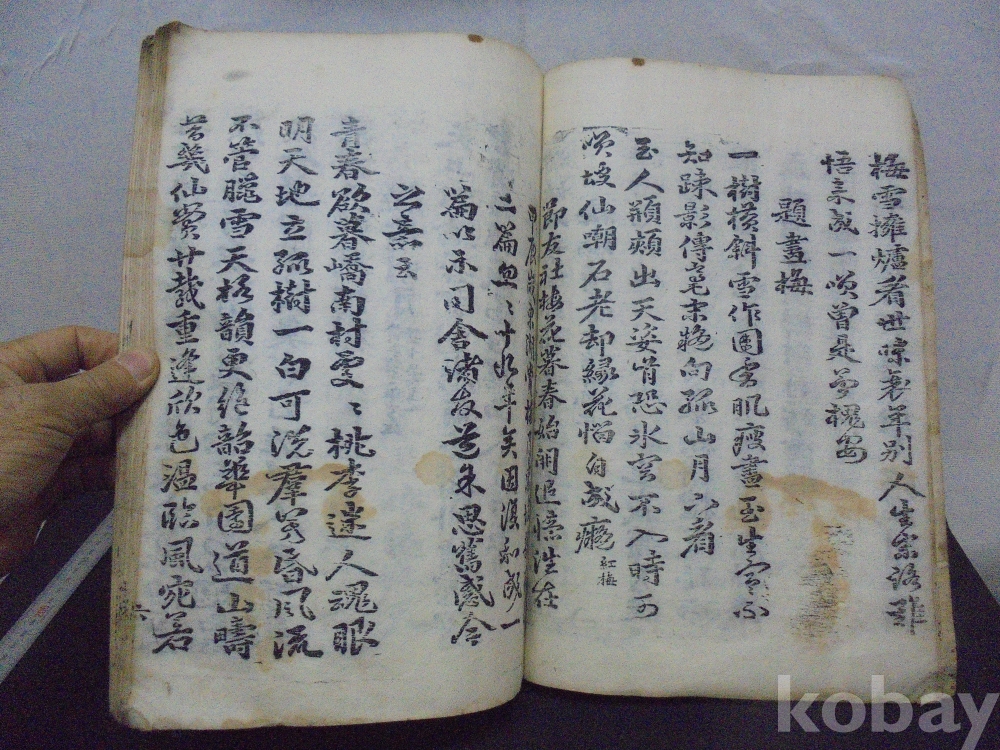 梅雪擁爐看世味衰年別人生樂語非
悟言成一笑曾是夢
題畫梅
一樹橫斜雪作圍香肌瘦盡玉生寒不
知疎影傳毫末恐向孤山月下看
玉人頩頰出天姿肯恐氷容不入時可
笑坡仙嘲石老却緣花惱自成癡 紅梅
節友社梅花暮春始開追憶往在
二篇忽〻十年矣因復和成一
篇以示同舍諸友道求思舊感今
之意云
青春欲暮嶠南村處〻桃李迷人魂眼
明天地立孤樹一白可洗群芳昏風流
不管臘雪天格韻更絶韶華園道山疇
昔幾仙賞廿載重逢欣色溫臨風宛若
六
kobay